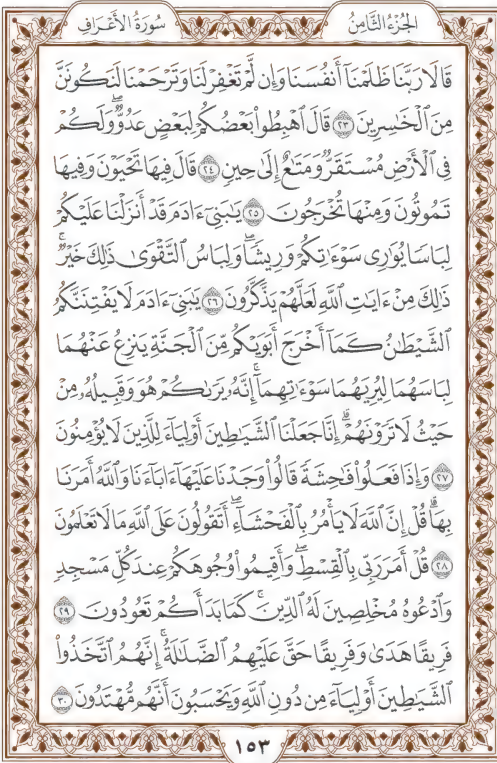 سُورَةُ الْأَعْرَافِ
الْجُزْءُ الثَّامِنُ
قَالَا رَبَّنَا ظَلَمْنَآ أَنفُسَنَا وَإِن لَّمْ تَغْفِرْ لَنَا وَتَرْحَمْنَا لَنَكُونَنَّ
مِنَ ٱلْخَٰسِرِينَ ٢٣ قَالَ ٱهْبِطُوا۟ بَعْضُكُمْ لِبَعْضٍ عَدُوٌّ ۖ وَلَكُمْ
فِى ٱلْأَرْضِ مُسْتَقَرٌّ وَمَتَٰعٌ إِلَىٰ حِينٍ ٢٤ قَالَ فِيهَا تَحْيَوْنَ وَفِيهَا
تَمُوتُونَ وَمِنْهَا تُخْرَجُونَ ٢٥ يَٰبَنِىٓ ءَادَمَ قَدْ أَنزَلْنَا عَلَيْكُمْ
لِبَاسًا يُوَٰرِى سَوْءَٰتِكُمْ وَرِيشًا ۖ وَلِبَاسُ ٱلتَّقْوَىٰ ذَٰلِكَ خَيْرٌ ۚ
ذَٰلِكَ مِنْ ءَايَٰتِ ٱللَّهِ لَعَلَّهُمْ يَذَّكَّرُونَ ٢٦ يَٰبَنِىٓ ءَادَمَ لَا يَفْتِنَنَّكُمُ
ٱلشَّيْطَٰنُ كَمَآ أَخْرَجَ أَبَوَيْكُم مِّنَ ٱلْجَنَّةِ يَنزِعُ عَنْهُمَا
لِبَاسَهُمَا لِيُرِيَهُمَا سَوْءَٰتِهِمَآ ۗ إِنَّهُۥ يَرَىٰكُمْ هُوَ وَقَبِيلُهُۥ مِنْ
حَيْثُ لَا تَرَوْنَهُمْ ۗ إِنَّا جَعَلْنَا ٱلشَّيَٰطِينَ أَوْلِيَآءَ لِلَّذِينَ لَا يُؤْمِنُونَ
٢٧ وَإِذَا فَعَلُوا۟ فَٰحِشَةً قَالُوا۟ وَجَدْنَا عَلَيْهَآ ءَابَآءَنَا وَٱللَّهُ أَمَرَنَا
بِهَا ۗ قُلْ إِنَّ ٱللَّهَ لَا يَأْمُرُ بِٱلْفَحْشَآءِ ۖ أَتَقُولُونَ عَلَى ٱللَّهِ مَا لَا تَعْلَمُونَ
٢٨ قُلْ أَمَرَ رَبِّى بِٱلْقِسْطِ ۖ وَأَقِيمُوا۟ وُجُوهَكُمْ عِندَ كُلِّ مَسْجِدٍ
وَٱدْعُوهُ مُخْلِصِينَ لَهُ ٱلدِّينَ ۚ كَمَا بَدَأَكُمْ تَعُودُونَ ٢٩
فَرِيقًا هَدَىٰ وَفَرِيقًا حَقَّ عَلَيْهِمُ ٱلضَّلَٰلَةُ ۗ إِنَّهُمُ ٱتَّخَذُوا۟
ٱلشَّيَٰطِينَ أَوْلِيَآءَ مِن دُونِ ٱللَّهِ وَيَحْسَبُونَ أَنَّهُم مُّهْتَدُونَ ٣٠
١٥٣